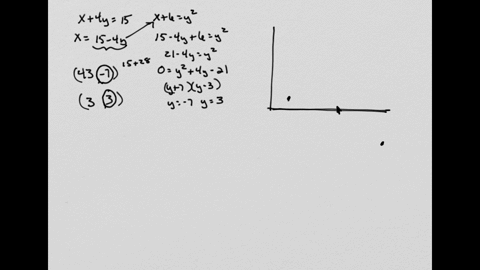 x+4y=15
x=15-4y
(43 -7) 15+28
(3 3)
x+6=y²
15-4y+6=y²
21-4y=y²
0=y²+4y-21
(y+7)(y-3)
y=-7 y=3